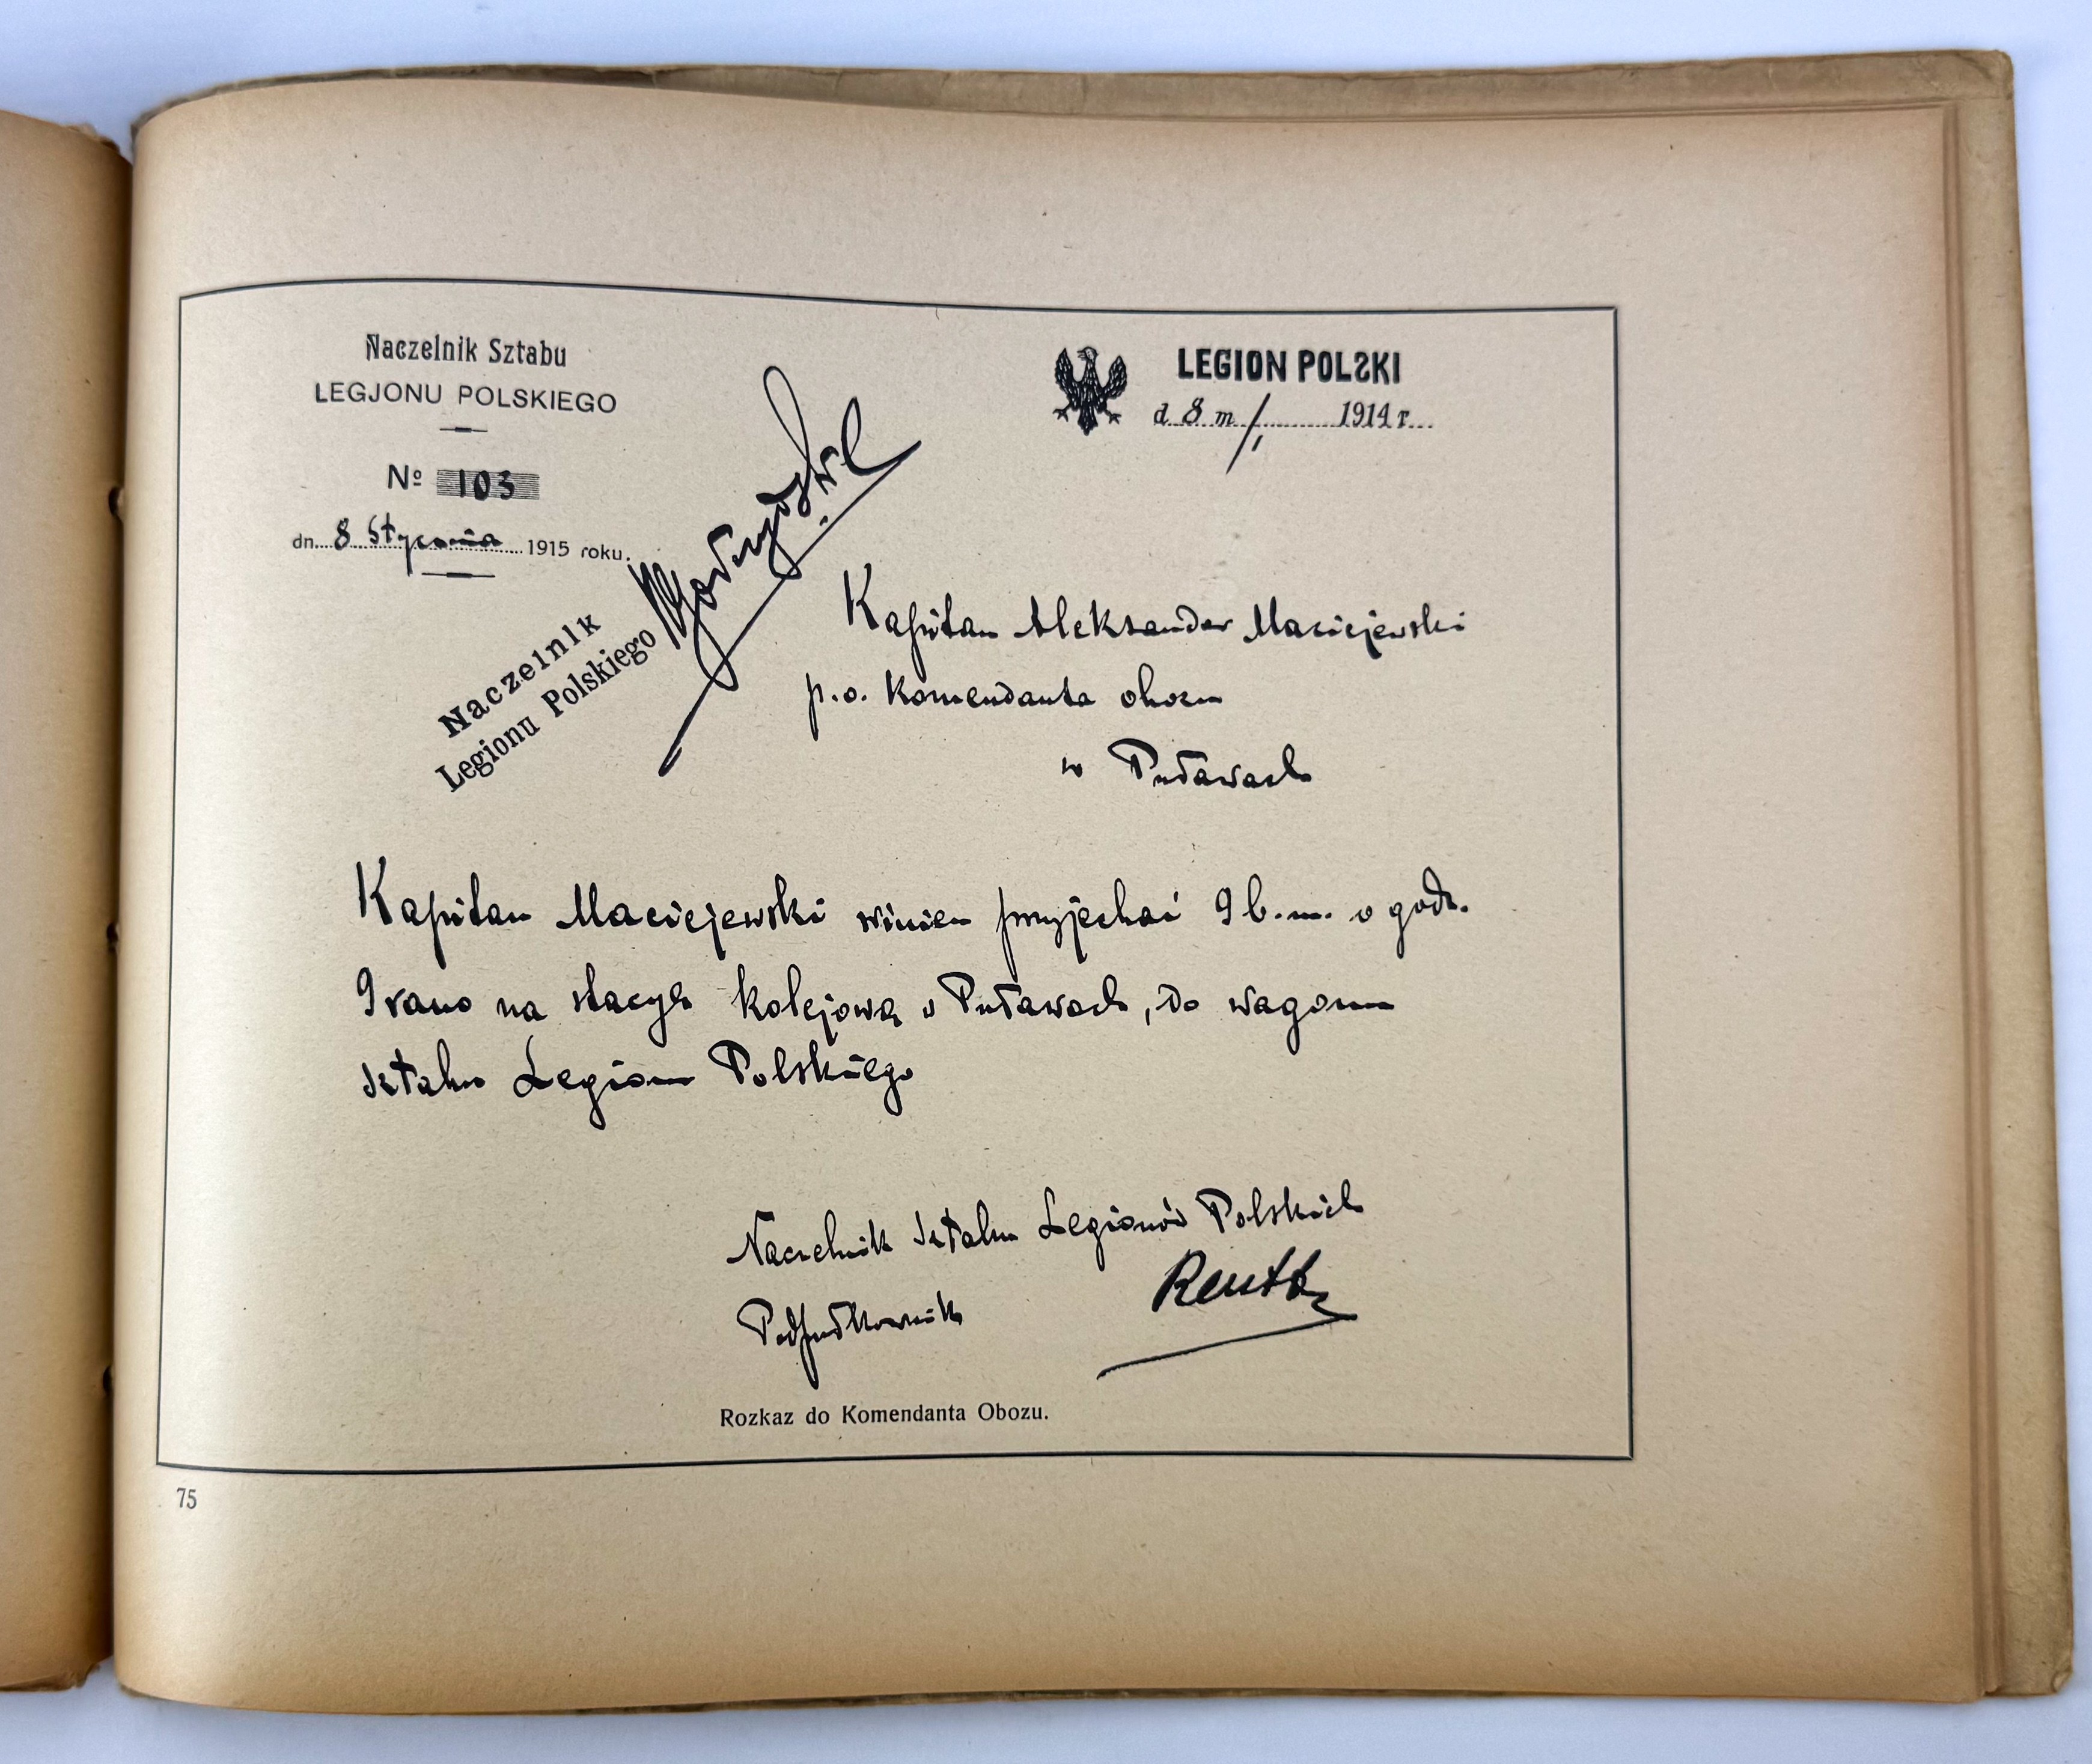 Naczelnik Sztabu
LEGJONU POLSKIEGO
№ 103
dn. 8 Stycznia 1915 roku.
LEGION POLSKI
d. 8 m /I 1914 r.
Naczelnik
Legionu Polskiego
Kapitan Aleksander Maciejewski
p.o. Komendanta obozu
w Puławach
Kapitan Maciejewski winien przyjechać 9 b.m. o godz.
9 rano na stacyę kolejową w Puławach, do wagonu
sztabu Legionu Polskiego
Naczelnik sztabu Legionów Polskich
Podpułkownik
Rozkaz do Komendanta Obozu.
75